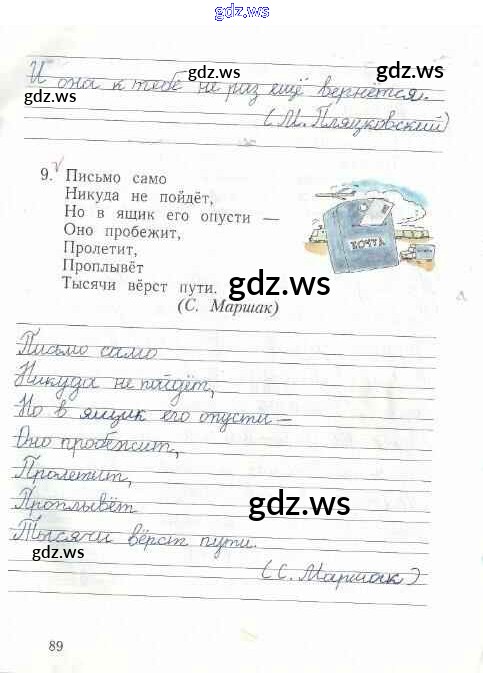 gdz.ws
И она к тебе не раз ещё вернётся.
gdz.ws
gdz.ws
gdz.ws
(М. Пляцковский)
9. Письмо само
Никуда не пойдёт,
Но в ящик его опусти —
Оно пробежит,
Пролетит,
Проплывёт
Тысячи вёрст пути.
(С. Маршак)
ПОЧТА
gdz.ws
Письмо само
Никуда не пойдёт,
Но в ящик его опусти —
Оно пробежит,
Пролетит,
Проплывёт
Тысячи вёрст пути.
(С. Маршак)
gdz.ws
gdz.ws
89
gdz.ws